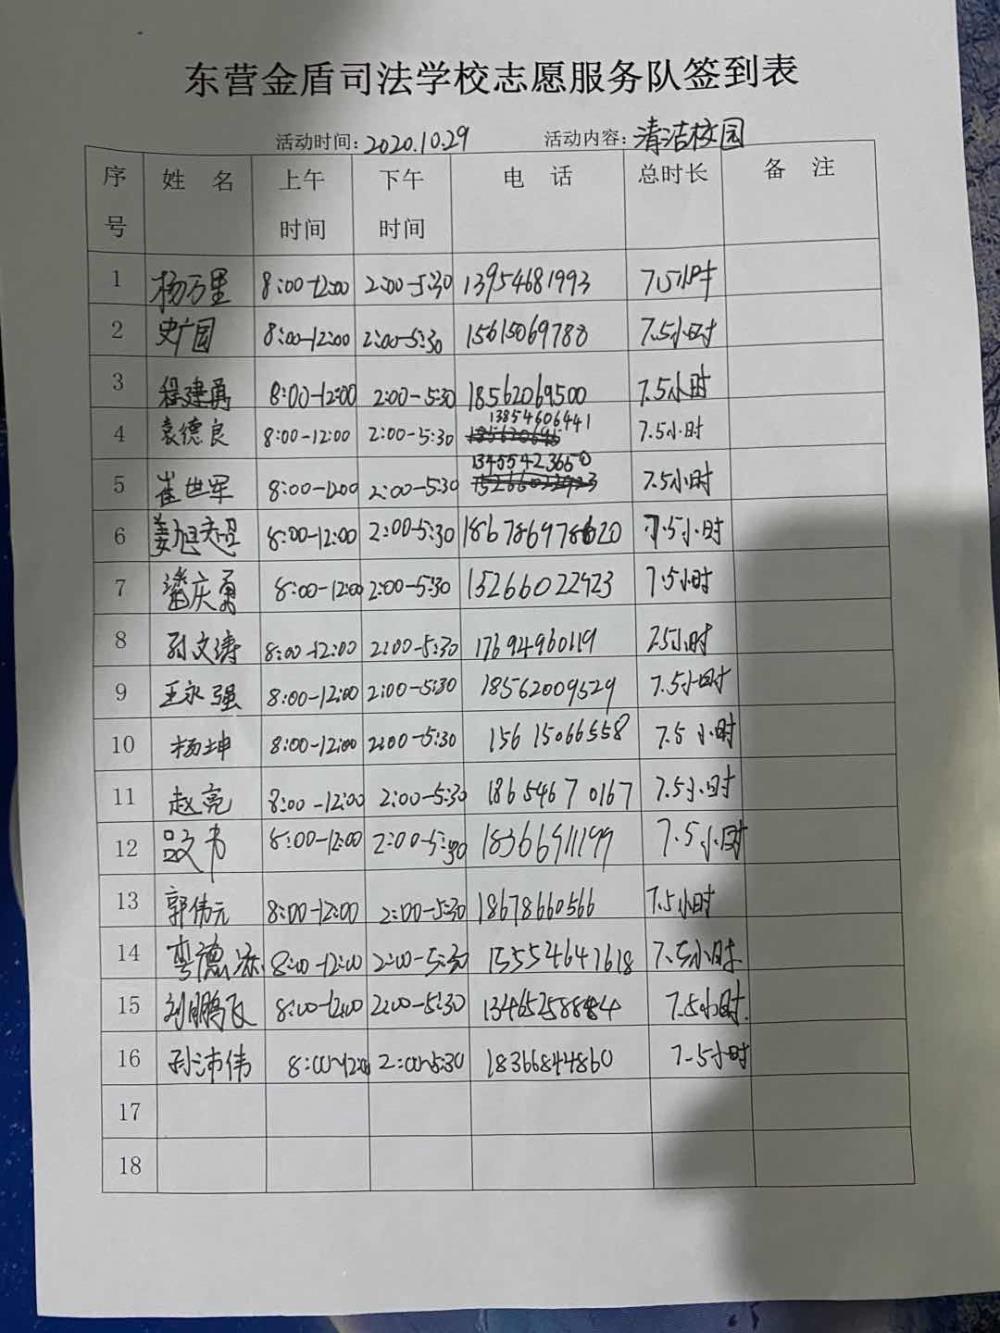 东营金盾司法学校志愿服务队签到表
活动时间: 2020.10.29 活动内容: 清洁校园
序号 姓名 上午时间 下午时间 电话 总时长 备注
1 杨万里 8:00-12:00 2:00-5:30 13954681993 7.5小时
2 史广园 8:00-12:00 2:00-5:30 15615069788 7.5小时
3 程建勇 8:00-12:00 2:00-5:30 18562069500 7.5小时
4 袁德良 8:00-12:00 2:00-5:30 13854606441 7.5小时
5 崔世军 8:00-1200 2:00-5:30 13455423650 7.5小时
6 姜旭超 8:00-12:00 2:00-5:30 7.5小时
7 潘庆勇 8:00-12:00 2:00-5:30 15266022923 7.5小时
8 孙文涛 8:00-12:00 2:00-5:30 17694960119 7.5小时
9 王永强 8:00-12:00 2:00-5:30 18562009529 7.5小时
10 杨坤 8:00-12:00 2:00-5:30 15615066558 7.5小时
11 赵亮 8:00-12:00 2:00-5:30 18654670167 7.5小时
12 8:00-12:00 2:00-5:30 18366911199 7.5小时
13 郭伟元 8:00-12:00 2:00-5:30 18678660566 7.5小时
14 8:00-12:00 2:00-5:30 15554647618 7.5小时
15 刘鹏飞 8:00-12:00 2:00-5:30 7.5小时
16 孙沛伟 8:00-12:00 2:00-5:30 18366844860 7-5小时
17
18